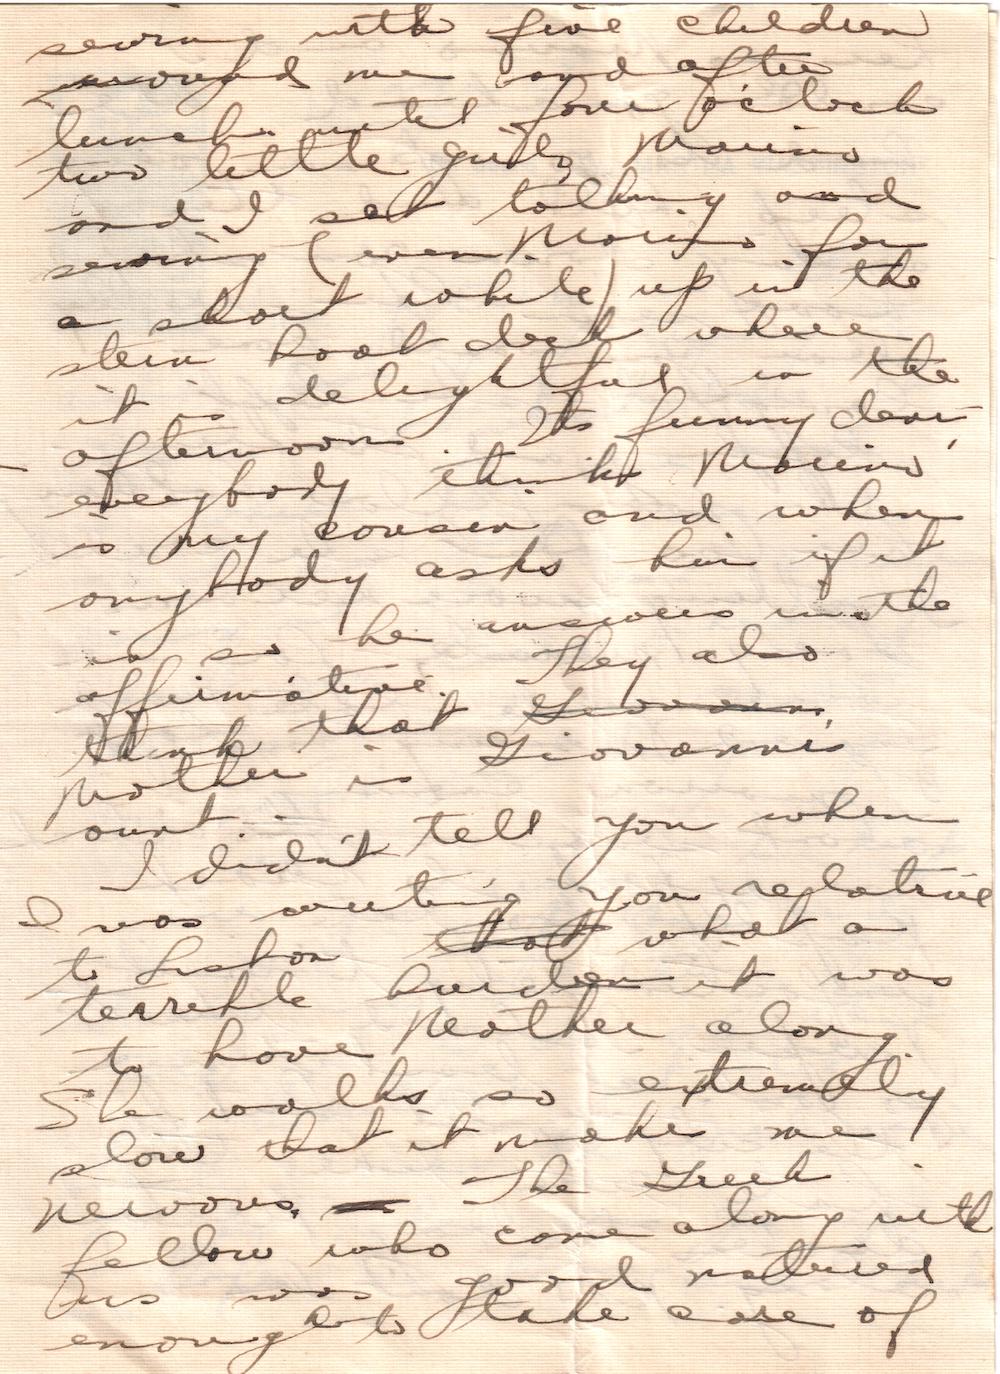 sewing with five children
around me and after
lunch until four o'clock
two little girls, Marino
and I sat talking and
sewing (even Marino for
a short while) up in the
stern boat deck where
it is delightful in the
afternoon. Its funny dear,
everybody thinks Marino
is my cousin and when
anybody asks him if it
is so he answers in the
affirmative. They also
think that Giovanni,
Mother is Giovannis
aunt.
I didn't tell you when
I was writing you relative
to Lisbon that what a
terrible burden it was
to have Mother along
She walks so extremely
slow that it makes me
nervous. The Greek
fellow who came along with
us was good natured
enough to take care of